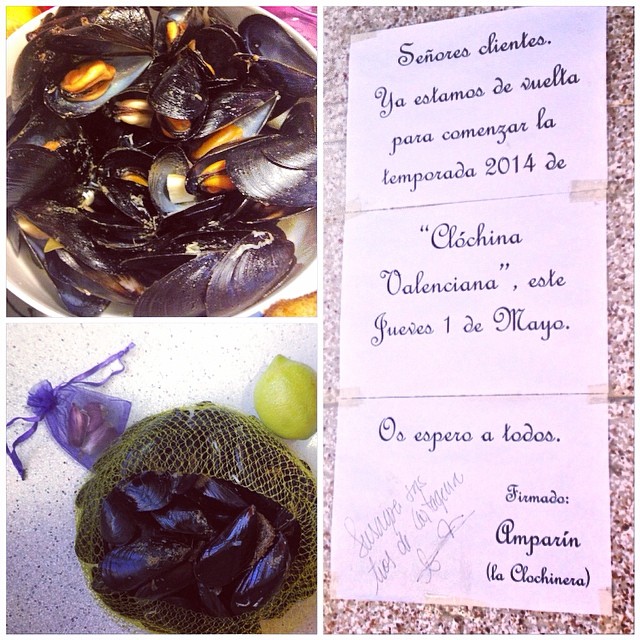 Señores clientes.
Ya estamos de vuelta
para comenzar la
temporada 2014 de
“Clóchina
Valenciana”, este
Jueves 1 de Mayo.
Os espero a todos.
Firmado:
Amparín
(la Clochinera)